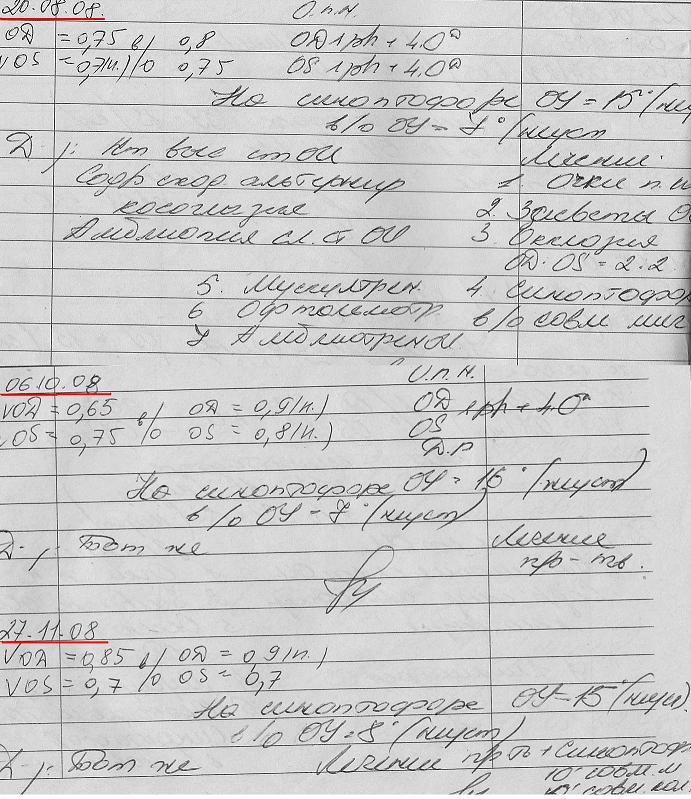 20.08.08. О.п.н.
OD = 0,75 в/ 0,8 OD sph + 4.0ᴰ
VOS = 0,7(н.) /о 0,75 OS sph + 4.0ᴰ
На синоптофоре ОУ = 15°
в/о ОУ = 7°
Д-з: Нm выс ст ОИ Лечение:
Содр сход. альтернир 1. Очки п.н
косоглазия 2. Засветы
Амблиопия сл. ст ОИ 3. Окклюзия
OD:OS = 2:2
5. Мускултрен. 4. Синоптофор
6 Офтольмотр. в/о совм миг
7 Амблиотренай
06.10.08 О.п.н.
VOD = 0,65 в/ OD = 0,9(н.) OD sph + 4.0ᴰ
VOS = 0,75 /о OS = 0,8(н.) OS
D.P
На синоптофоре ОУ = 16°
в/о ОУ - 7°
Д-з: Тот же Лечение
пр-ть.
27.11.08
VOD = 0,85 в/ OD = 0,9(н.)
VOS = 0,7 /о OS = 0,7
На синоптофоре ОУ = 15°
в/о ОУ = 8°
Д-з: Тот же Лечение пр-ть + Синоптоф
10' совм. м
10' совм. кол.